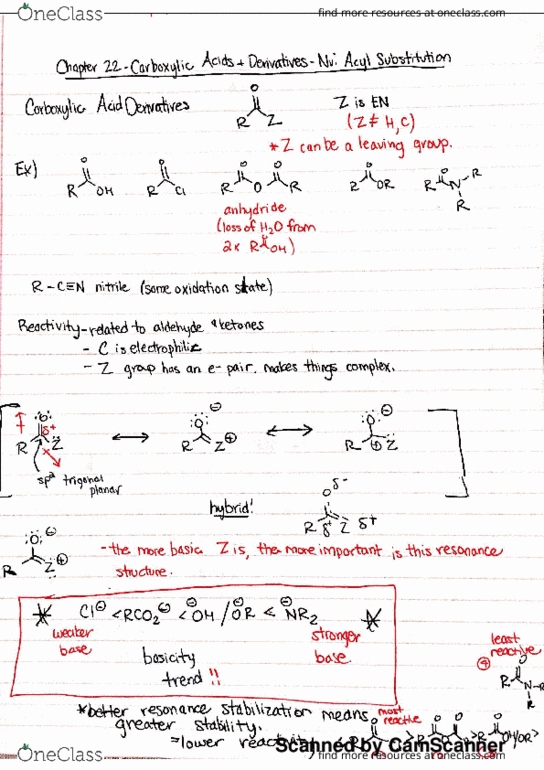 OneClass find more resources at oneclass.com
Chapter 22 - Carboxylic Acids + Derivatives - Nu: Acyl Substitution
Carboxylic Acid Derivatives O R Z Z is EN
(Z ≠ H, C)
* Z can be a leaving group.
Ex) O R OH O R Cl O O R O R O R OR O R N R R
anhydride
(loss of H2O from
2x R O OH)
R - C≡N nitrile (same oxidation state)
Reactivity - related to aldehyde + ketones
- C is electrophilic
- Z group has an e- pair. makes things complex.
:O: δ+ R Z ↔ :O: ⊖ R Z ⊕ ↔ :O: ⊖ R ⊕ Z
sp2 trigonal
planar
hybrid! O δ- R δ+ Z δ+
:O: ⊖ R Z ⊕ - the more basic Z is, the more important is this resonance
structure.
* Cl⊖ < RCO2⊖ < ⊖OH / ⊖OR < ⊖NR2 *
weaker
base
stronger
base.
basicity
trend !!
least
reactive
④ O R N R R
*better resonance stabilization means
greater stability.
most
reactive
=lower reactivity
Scanned by CamScanner
OneClass find more resources at oneclass.com